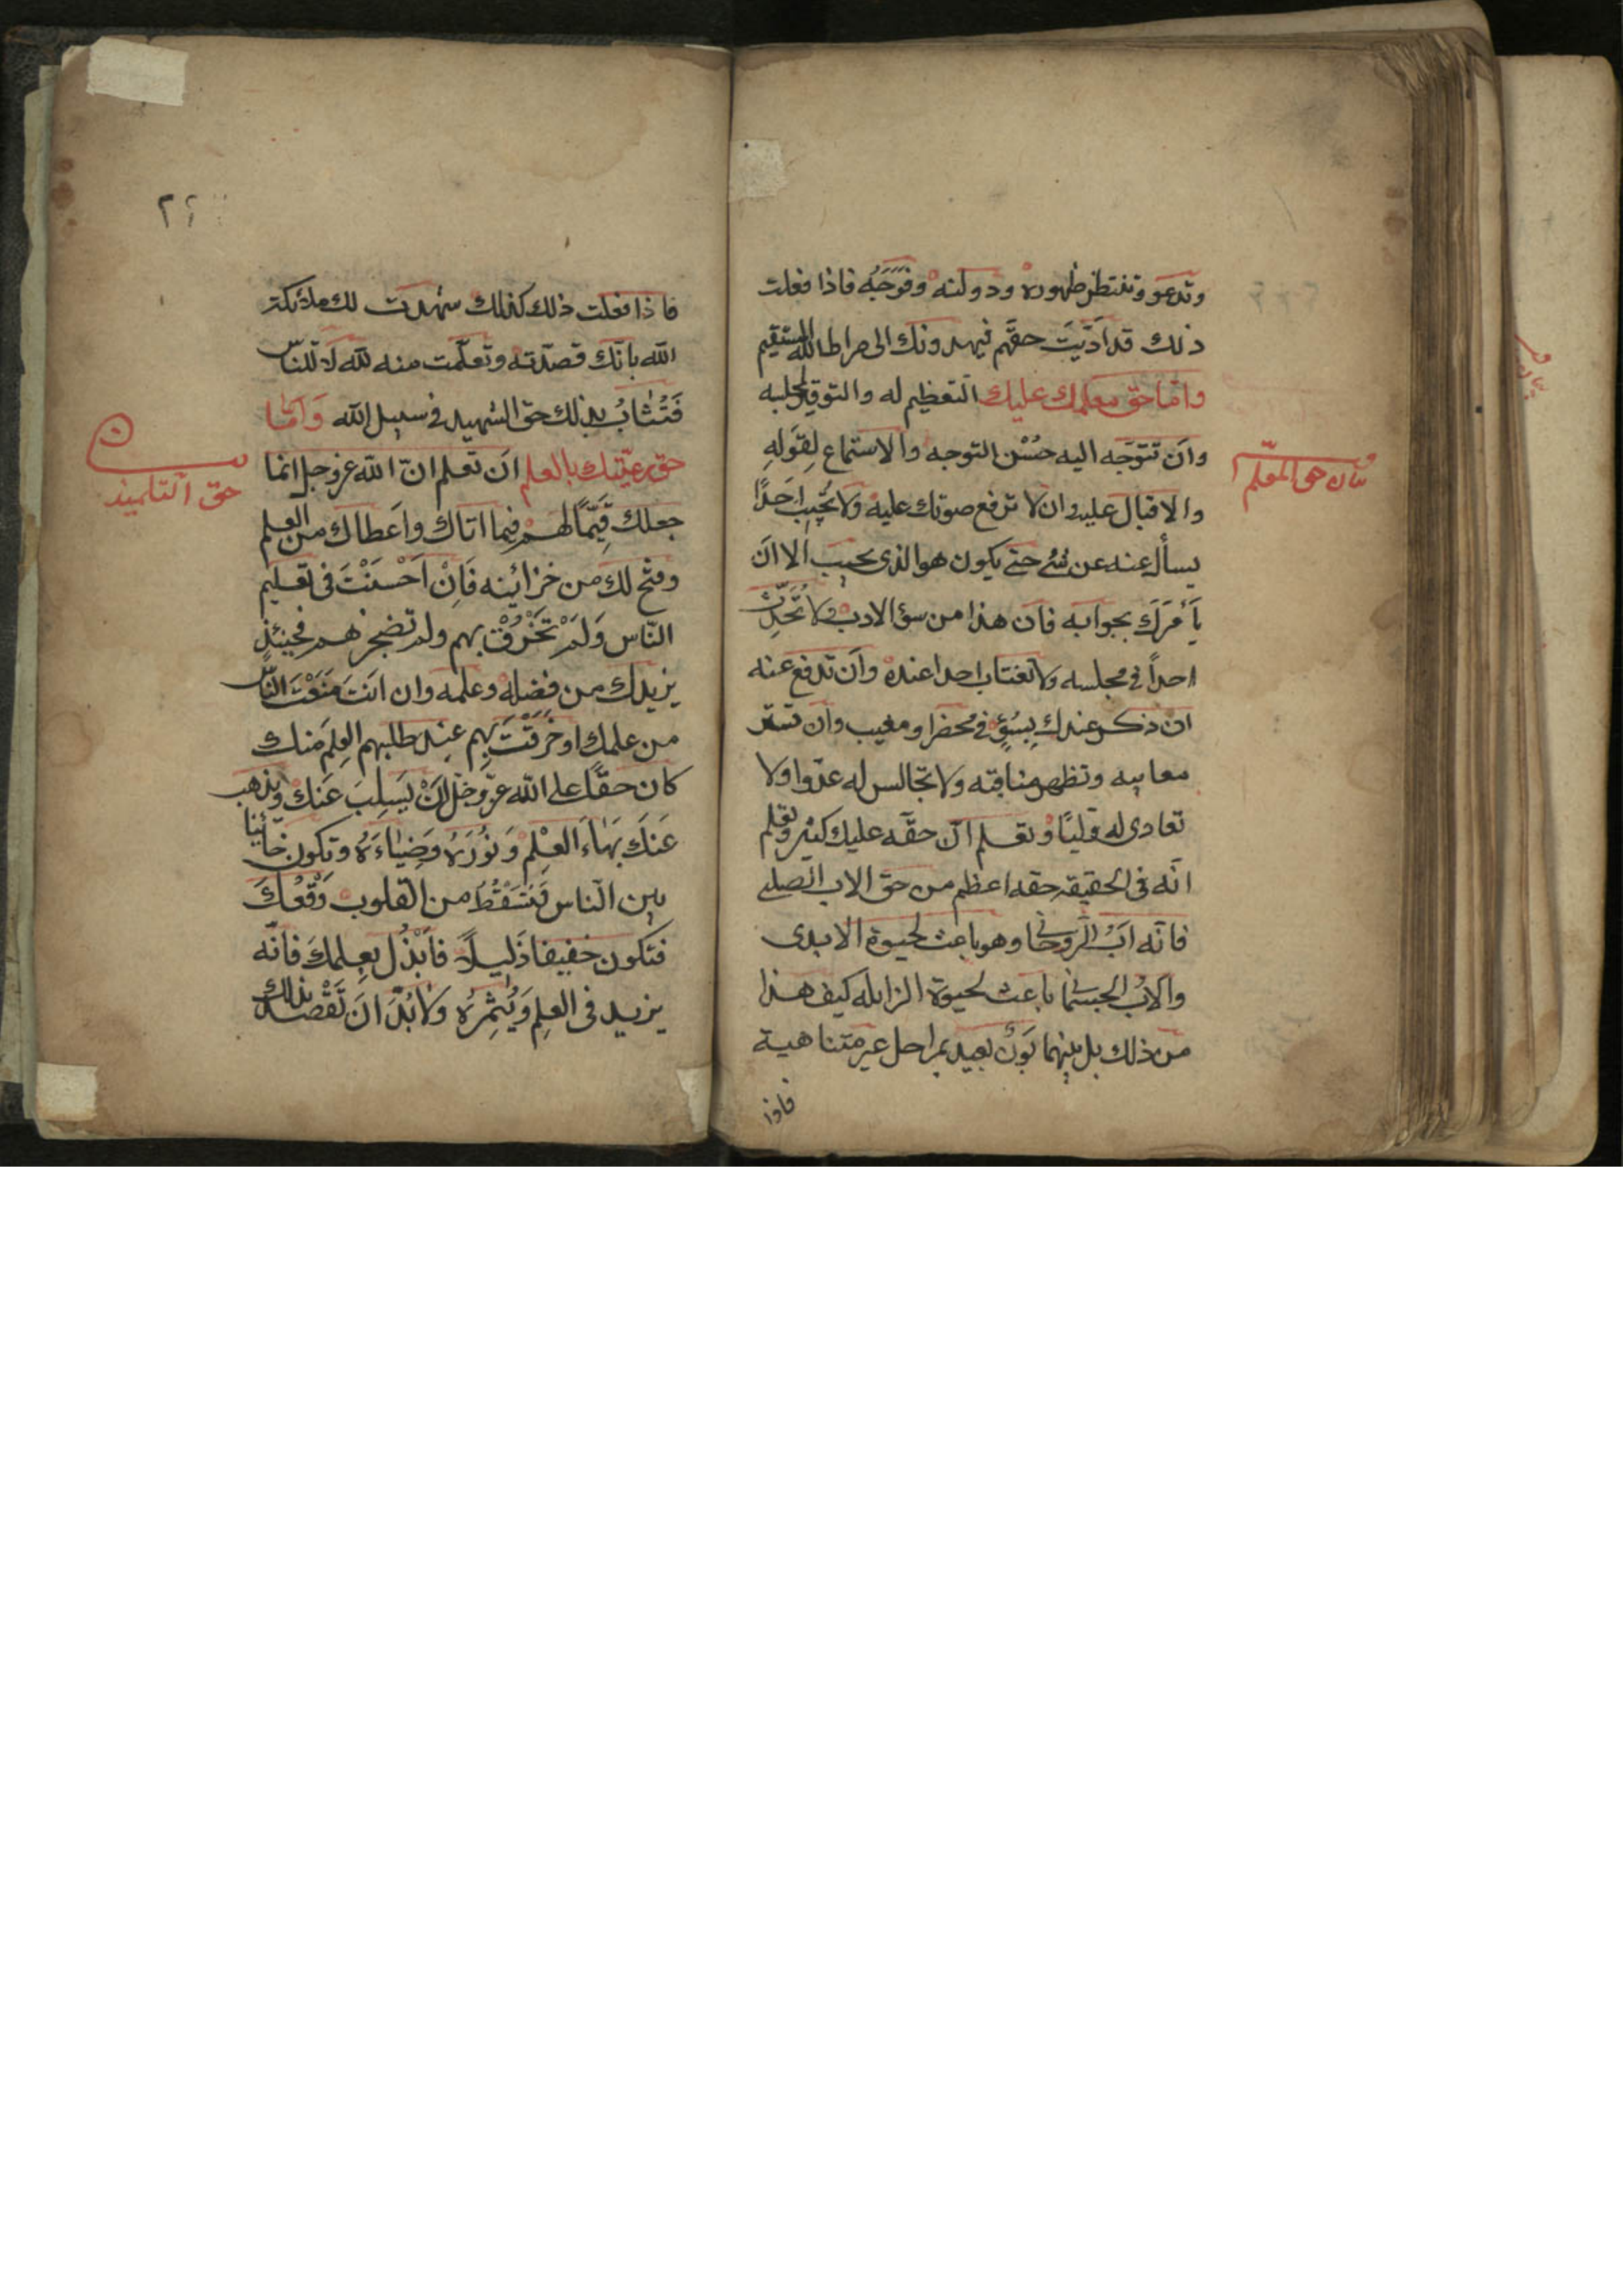 وتدعو وتنتظر ظهوره ودولته وفَرَجَهُ فاذا فعلت
ذلك قد اَدَّيْتَ حقّهم فيهدونك الى صراط الله المستقيم
وامّا حق معلمك عليك التعظيم له والتوقير لمجلسه
واَن تتوَجه اليه حُسْن التوجه والاستماع لِقَولِهِ
والاقبال عليه وان لا ترفع صوتك عليه ولا تُجِيبَ اَحَدًا
يسأل عنه عن شئ حتى يكون هو الذى يجيب الا اَن
يَأمُرَكَ بجوابه فان هذا من سؤ الادب ولا تُحَدِّث
احداً فى مجلسه ولا تغتاب احدا عنده واَن تدفع عنه
ان ذكر عندك بِسُوءٍ فى محضر او مغيب وان تستر
معايبه وتظهر مناقبه ولا تجالس له عدوا ولا
تعادى له وليًا وتعلم انّ حقّه عليك كثير وتعلم
انّه فى الحقيقه حقه اعظم من حق الاب الصلبى
فانّه اَبُ الرّوحانى وهو باعث لحيوة الابدى
والابُ الجسمانى باعث لحيوة الزايله كيف هذا
من ذلك بل بينهما بَوْنٌ بعيد بمراحل غير متناهية
فاذا
بيان حق المعلّم
٢٢
فاذا فعلت ذلك كذلك شهدت لك ملائكة
الله بانّك قصدته وتعلّمت منه لله لا للناس
فَتُثابُ بذلك حق الشهيد فى سبيل الله وَامّا
حق رعيّتك بالعلم اَن تعلم انّ الله عز وجل انما
جعلك قَيِّمًا لهم فيما اتاك واَعطاك من العلم
وفتح لك من خزائنه فَاِنْ اَحْسَنْتَ فى تعليم
النّاس وَلَمْ تَخْرُقْ بهم ولم تضجرهم فحينئذٍ
يزيدك من فضله وعلمه وان انتَ مَنَعْتَ النّاس
من علمك او خَرَقْتَ بِهِم عِند طلبهم العِلمَ منك
كان حقًّا على الله عزّ وجَل اَنْ يَسلِبَ عَنك ويذهب
عَنكَ بَهاءَ العْلِمْ وَنُورَهُ وَضِياءَهُ وتكون خائبا
بين الناس فَتَسْقُطَ من القلوب وَقْعُكَ
فتكون خفيفا ذَليلاً فابْذُل بعِلمكَ فانّه
يزيد فى العلِم وَيُثمِرُهُ ولا بُدَّ اَنَ تَقْصُد بذلك
حق التلميذ